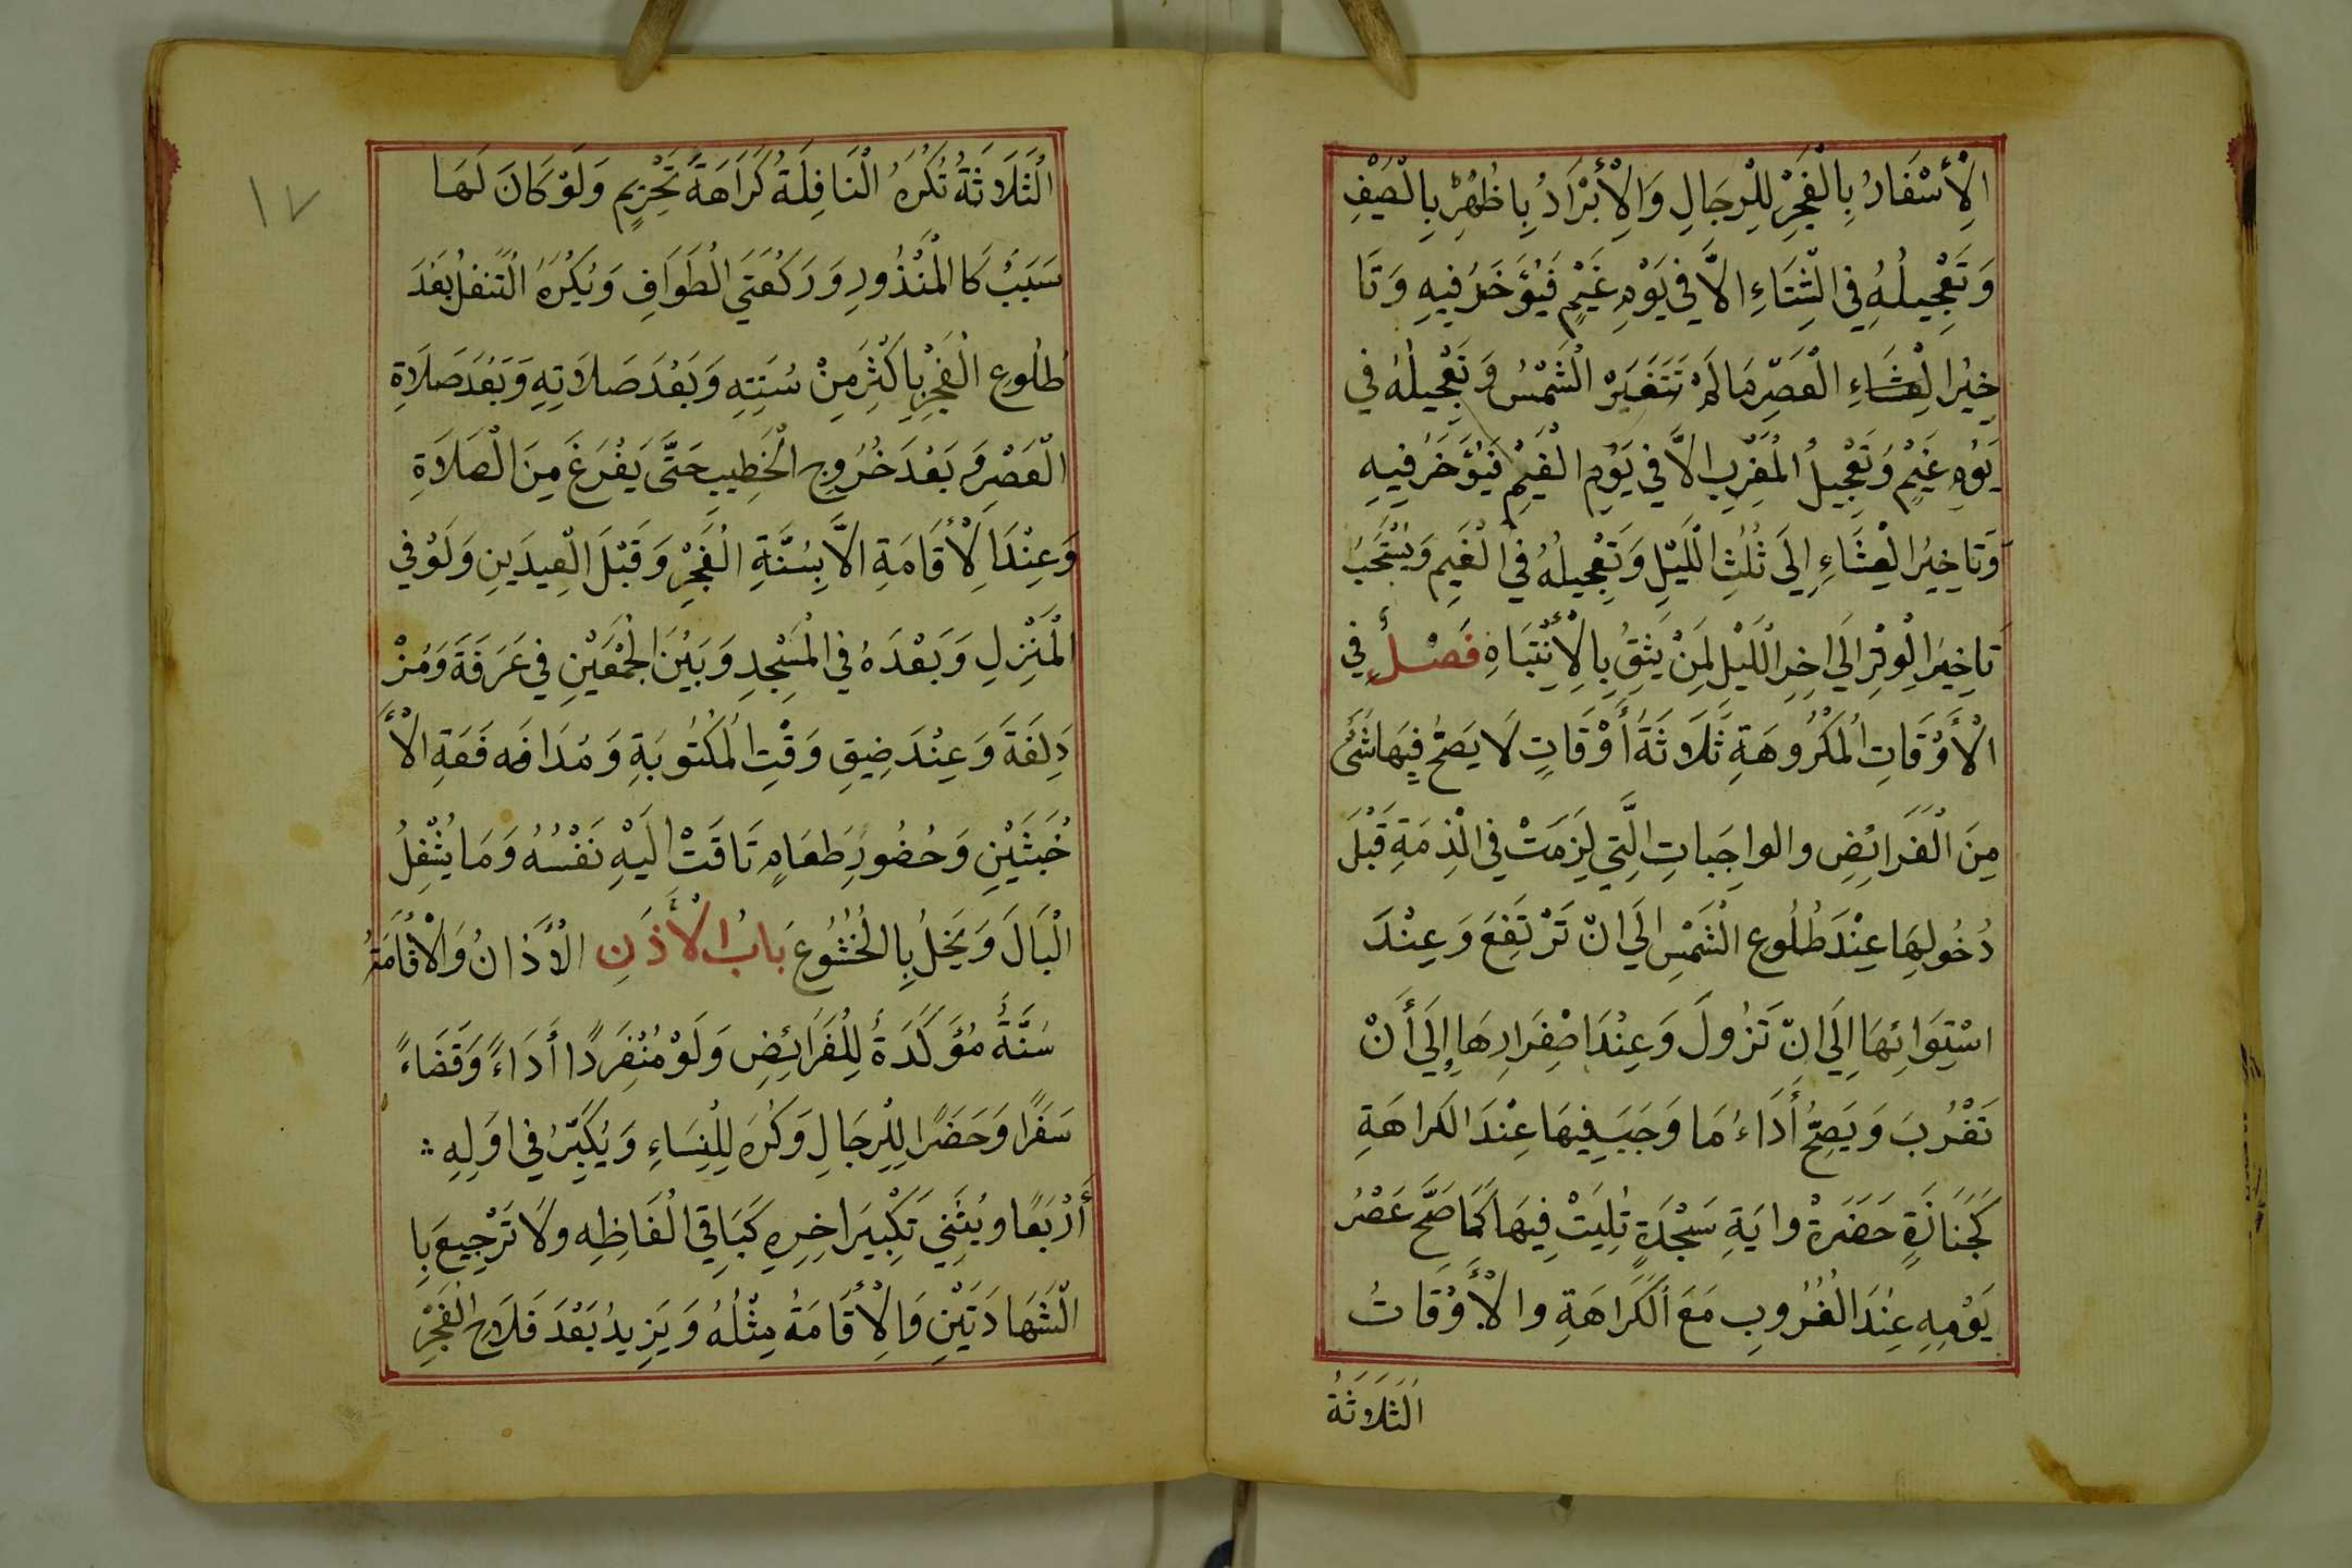 الْأَسْفَارُ بِالْفَجْرِ لِلرِّجَالِ وَالْأَبْرَادُ بِاظُهْرِ بِالْصَيْفِ
وَتَعْجِيلُهُ فِي الْشِتَاءِ الاَّ فِي يَوْمِ غَيْمٍ فَيُؤَخَرُ فِيهِ وَتَا
خِيْرُ الْعِشَاءِ الْعَصْرِ مَا لَمْ تَتَغَيَرْ الْشَمْسُ وَتَعْجِيلُهُ فِي
يَوْمِ غَيْمٍ وَتَعْجِيلُ الْمَغْرِبِ الاَّ فِي يَوْمِ الْغَيْمِ فَيُؤَخَرُ فِيهِ
وَتَاخِيْرُ الْعِشَاءِ اِلَى ثُلُثِ الْلَيْلِ وَتَعْجِيلُهُ فِي الْغَيْمِ وَيُسْتَحَبُ
تَاخِيْرَ الْوِتْرِ اِلَى اخِرِ الْلَيْلِ لِمَنْ يَثِقُ بِالْأِنْتِبَاهِ فَصْلٌ فِي
الْأَوْقَاتِ الْمَكْرُوهَةِ ثَلَاثَةُ أَوْقَاتٍ لَا يَصَحُ فِيهَا شَئٌ
مِنَ الْفَرَائِضِ والواجِباتِ الَّتِي لَزِمَتْ فِي الْذِمَةِ قَبْلَ
دُخُولِهَا عِنْدَ طُلُوعِ الْشَمْسِ اِلَي انْ تَرْتَفِعَ وَعِنْدَ
اسْتِوَائِهَا اِلَى انْ تَزُولَ وَعِنْدَ اصْفِرَارِهَا إِلَي أَنْ
تَغْرُبَ وَيَصِحُّ أَدَاءُ مَا وَجَبَ فِيهَا عِنْدَ الكَراهَةِ
كَجَنَازَةٍ حَضَرَةْ وايَةِ سَجْدَةٍ تُلِيَتْ فِيهَا كَمَا صَحَّ عَصْرُ
يَوْمِهِ عِنْدَ الْغُرُوبِ مَعَ الْكَرَاهَةِ والْأَوْقَاتُ
الْثَلَاثَةُ
١٧
الْثَلَاثَةُ تُكْرَهُ الْنَافِلَةُ كَرَاهَةً تَحْرِيمٍ وَلَوْ كَانَ لَهَا
سَبَبُ كَا الْمَنْذُورِ وَرَكْعَتَي الْطَوَافِ وَيُكْرَهُ الْتَنَفلُ بَعْدَ
طُلُوعِ الْفَجْرِ بِاكْثَرِ مِنْ سُنَتِهِ وَبَعْدَ صَلَاتِهِ وَبَعْدَ صَلَاةِ
الْعَصْرِ وَبَعْدَ خُرُوجِ الْخَطِيبِ حَتَّى يَفْرَغَ مِنَ الْصَلَاةِ
وَعِنْدَ الْأَقَامَةِ الاَّ بِسُنَّةِ الْفَجْرِ وَقَبْلَ الْعِيدَينِ وَلَوْ فِي
الْمَنْزِلِ وَبَعْدَهُ فِي الْمَسْجِدِ وَبَيْنَ الْجَمْعَيْنِ فِي عَرَفَةَ وَمُزْ
دَلِفَةَ وَعِنْدَ ضِيقِ وَقْتِ الْمَكْتُوبَةِ وَمُدَافَعَه فَعَةِ الْأَ
خْبَثَيْنِ وَحُضُورِ طَعَامٍ تَاقَتْ اِلَيْهِ نَفْسُهُ وَمَا يُشْغِلُ
الْبَالَ وَيَخِلُ بِالْخُشُوعَ بابُ الْأَذَنِ الْأَذانُ وَالْأقَامَةُ
سُنَّةٌ مُؤَكَدَةٌ لِلْفَرَائِضِ وَلَوْ مُنْفَرِدًا أَدَاءً وَقَضَاءً
سَفَرًا وَحَضَرًا لِلْرِجَالِ وَكُرِهَ لِلْنِسَاءِ وَيُكَبِّرُ فِي اوَلِهِ
أَرْبَعًا ويُثَنِي تَكْبِيَر اخِرِهِ كَبَاقِي الْفَاظِهِ ولَا تَرْجِيعَ بِا
الْشَهَادَتَيْنِ وَالْأِقَامَةُ مِثْلُهُ وَيَزِيدُ بَعْدَ فَلَاحِ الْفَجْرِ